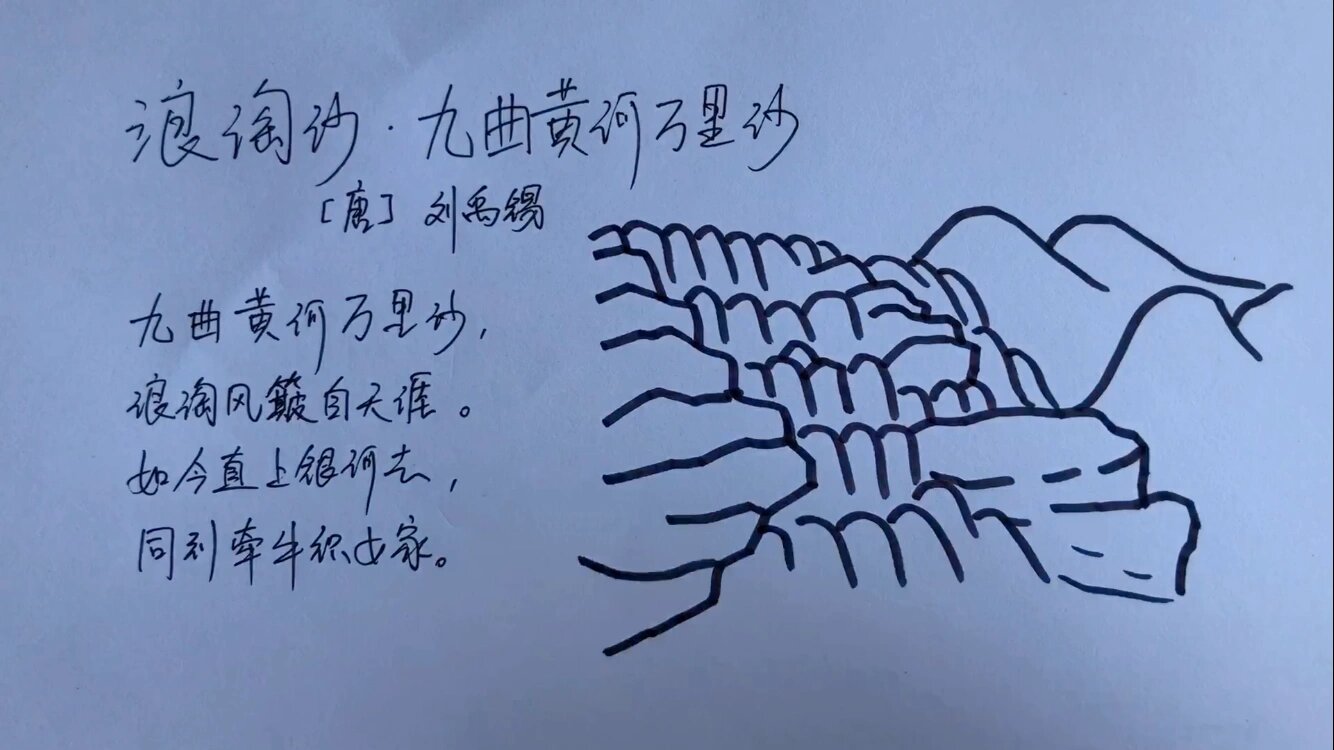 浪淘沙·九曲黄河万里沙
[唐] 刘禹锡
九曲黄河万里沙，
浪淘风簸自天涯。
如今直上银河去，
同到牵牛织女家。